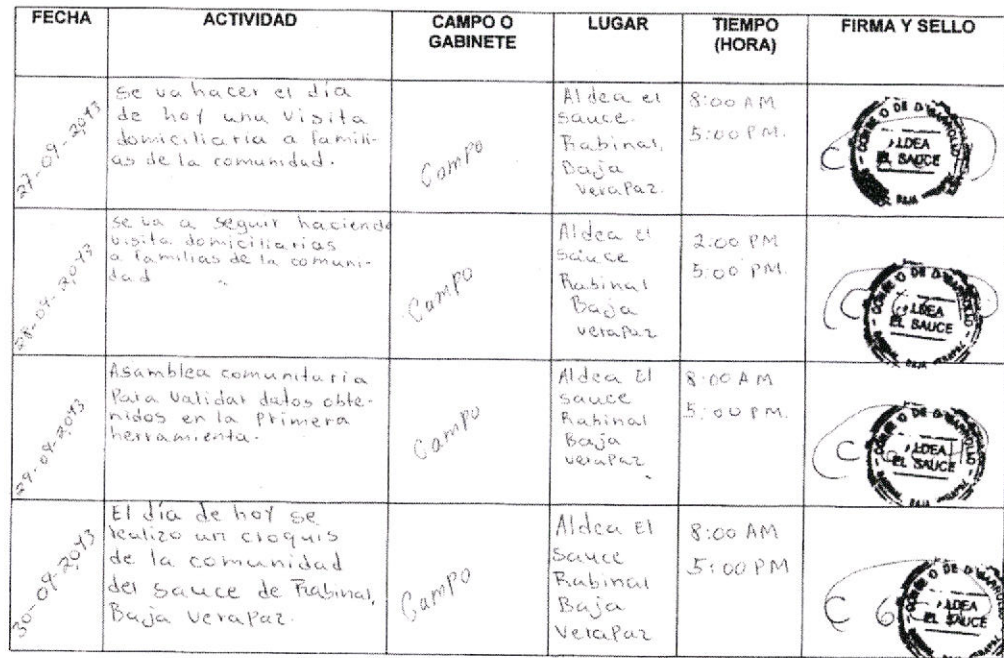 FECHA
ACTIVIDAD
CAMPO O
GABINETE
LUGAR
TIEMPO
(HORA)
FIRMA Y SELLO
27-09-2,013
se va hacer el día
de hoy una visita
domiciliaria a famili-
as de la comunidad.
Campo
Aldea el
sauce.
Rabinal,
Baja
verapaz.
8:00 AM
5:00 PM.
ALDEA
EL SAUCE
BAJA
28-09-2,013
se va a seguir haciendo
visita domiciliarias
a familias de la comuni-
dad
Campo
Aldea el
Sauce
Rabinal
Baja
verapaz
2:00 PM
5:00 PM.
ALDEA
EL SAUCE
BAJA
29-09-2,013
Asamblea comunitaria
Para validar datos obte-
nidos en la Primera
herramienta.
Campo
Aldea El
sauce
Rabinal
Baja
verapaz
8:00 AM
5:00 PM.
ALDEA
EL SAUCE
BAJA
30-09-2,013
El día de hoy se
realizo un croquis
de la comunidad
del Sauce de Rabinal,
Baja Verapaz.
Campo
Aldea El
Sauce
Rabinal
Baja
Verapaz
8:00 AM
5:00 PM
ALDEA
EL SAUCE